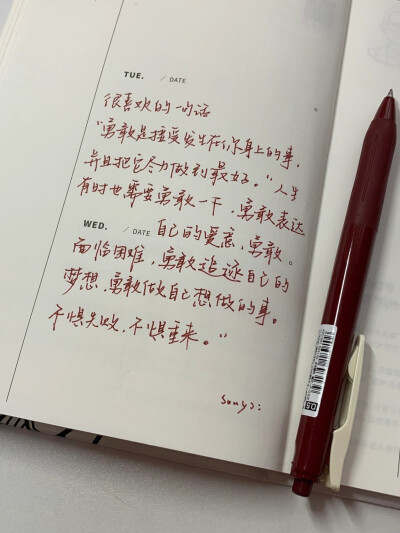 TUE. / DATE
很喜欢的一句话
“勇敢是接受发生在你身上的事,
并且把它尽力做到最好。”人生
有时也需要勇敢一下,勇敢表达
WED. / DATE 自己的爱意,勇敢。
面临困难,勇敢追逐自己的
梦想,勇敢做自己想做的事。
不惧失败,不惧重来。”